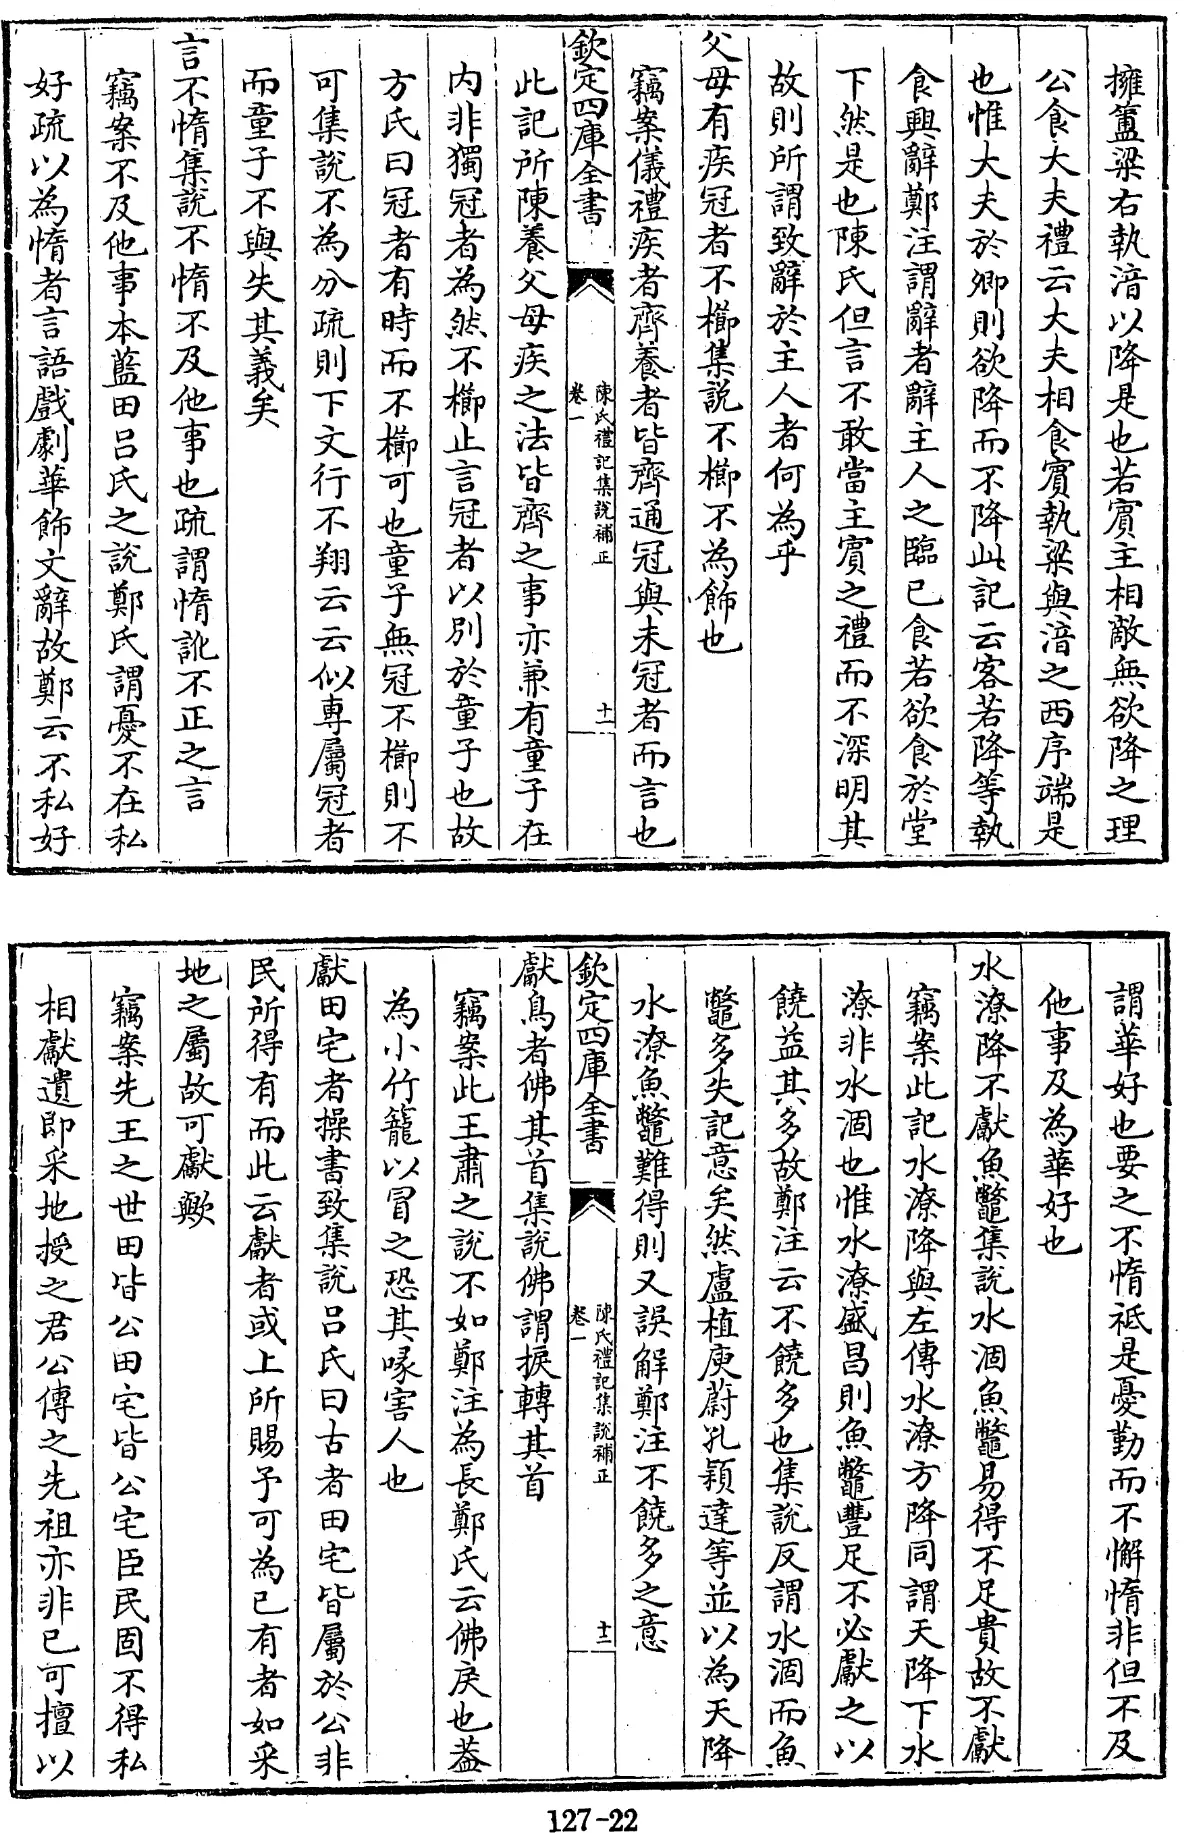 擁簠粱右執湆以降是也若賓主相敵無欲降之理
公食大夫禮云大夫相食賓執粱與湆之西序端是
也惟大夫於卿則欲降而不降此記云客若降等執
食興辭鄭注謂辭者辭主人之臨已食若欲食於堂
下然是也陳氏但言不敢當主賓之禮而不深明其
故則所謂致辭於主人者何為乎
父母有疾冠者不櫛集説不櫛不為飾也
竊案儀禮疾者齊養者皆齊通冠與未冠者而言也
欽定四庫全書
陳氏禮記集説補正
卷一
十一
此記所陳養父母疾之法皆齊之事亦兼有童子在
内非獨冠者為然不櫛止言冠者以别於童子也故
方氏曰冠者有時而不櫛可也童子無冠不櫛則不
可集説不為分疏則下文行不翔云云似專屬冠者
而童子不與失其義矣
言不惰集説不惰不及他事也疏謂惰訛不正之言
竊案不及他事本藍田吕氏之説鄭氏謂憂不在私
好疏以為惰者言語戲劇華飾文辭故鄭云不私好
謂華好也要之不惰祗是憂勤而不懈惰非但不及
他事及為華好也
水潦降不獻魚鼈集説水涸魚鼈易得不足貴故不獻
竊案此記水潦降與左傳水潦方降同謂天降下水
潦非水涸也惟水潦盛昌則魚鼈豐足不必獻之以
饒益其多故鄭注云不饒多也集説反謂水涸而魚
鼈多失記意矣然盧植庾蔚孔穎達等並以為天降
水潦魚鼈難得則又誤解鄭注不饒多之意
欽定四庫全書
陳氏禮記集説補正
卷一
十二
獻鳥者佛其首集説佛謂捩轉其首
竊案此王肅之説不如鄭注為長鄭氏云佛戾也蓋
為小竹籠以冒之恐其喙害人也
獻田宅者操書致集説吕氏曰古者田宅皆屬於公非
民所得有而此云獻者或上所賜予可為已有者如采
地之屬故可獻歟
竊案先王之世田皆公田宅皆公宅臣民固不得私
相獻遺即采地授之君公傳之先祖亦非已可擅以
127-22